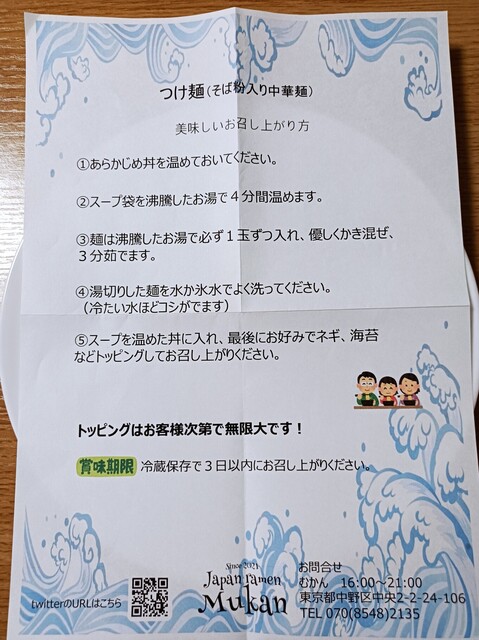 つけ麺（そば粉入り中華麺）
美味しいお召し上がり方
①あらかじめ丼を温めておいてください。
②スープ袋を沸騰したお湯で４分間温めます。
③麺は沸騰したお湯で必ず１玉ずつ入れ、優しくかき混ぜ、
３分茹でます。
④湯切りした麺を水か氷水でよく洗ってください。
（冷たい水ほどコシがでます）
⑤スープを温めた丼に入れ、最後にお好みでネギ、海苔
などトッピングしてお召し上がりください。
トッピングはお客様次第で無限大です！
賞味期限 冷蔵保存で３日以内にお召し上がりください。
twitterのURLはこちら
Since 2021
Japan ramen
Mukan
お問合せ
むかん　16:00～21:00
東京都中野区中央2-2-24-106
TEL 070(8548)2135